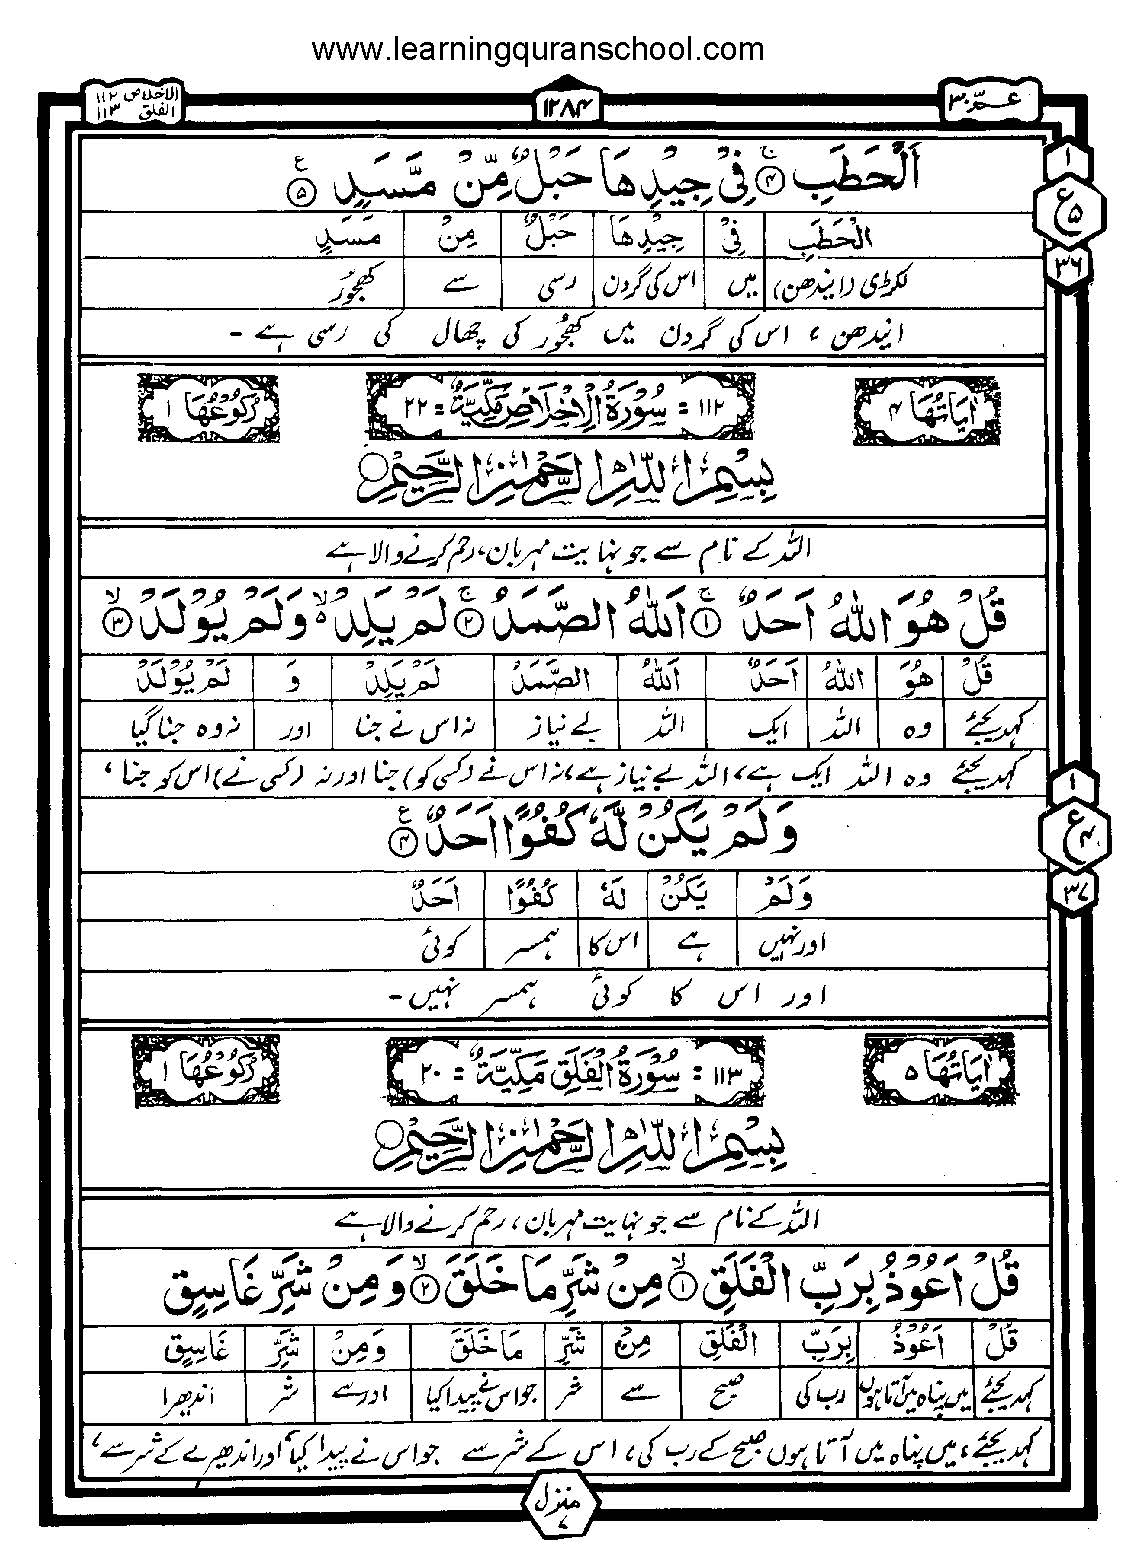 www.learningquranschool.com
عمّ ٣٠
١٢٨٤
الاخلاص ١١٢
الفلق ١١٣
اَلْحَطَبِ ۝٤ فِیْ جِیْدِهَا حَبْلٌ مِّنْ مَّسَدٍ ۝٥
١
ع ٥
٣٦
الْحَطَبِ فِیْ جِیْدِهَا حَبْلٌ مِنْ مَسَدٍ
لکڑی (ایندھن) میں اس کی گردن رسی سے کھجور
ایندھن، اس کی گردن میں کھجور کی چھال کی رسی ہے -
اٰیَاتُهَا ٤
١١٢ = سُوْرَةُ الْاِخْلَاصِ مَكِّیَّةٌ = ٢٢
رُكُوْعُهَا ١
بِسْمِ اللّٰهِ الرَّحْمٰنِ الرَّحِیْمِ
اللہ کے نام سے جو نہایت مہربان، رحم کرنے والا ہے
قُلْ هُوَ اللّٰهُ اَحَدٌ ۝١ اَللّٰهُ الصَّمَدُ ۝٢ لَمْ یَلِدْ ۙ وَلَمْ یُوْلَدْ ۝٣
قُلْ هُوَ اللّٰهُ اَحَدٌ اَللّٰهُ الصَّمَدُ لَمْ یَلِدْ وَ لَمْ یُوْلَدْ
کہہ دیجئے وہ اللہ ایک اللہ بے نیاز نہ اس نے جنا اور نہ وہ جنا گیا
کہہ دیجئے وہ اللہ ایک ہے، اللہ بے نیاز ہے، نہ اس نے (کسی کو) جنا اور نہ (کسی نے) اس کو جنا،
وَلَمْ یَكُنْ لَّهٗ كُفُوًا اَحَدٌ ۝٤
١
ع ٤
٣٧
وَلَمْ یَكُنْ لَهٗ كُفُوًا اَحَدٌ
اور نہیں ہے اس کا ہمسر کوئی
اور اس کا کوئی ہمسر نہیں -
اٰیَاتُهَا ٥
١١٣ = سُوْرَةُ الْفَلَقِ مَكِّیَّةٌ = ٢٠
رُكُوْعُهَا ١
بِسْمِ اللّٰهِ الرَّحْمٰنِ الرَّحِیْمِ
اللہ کے نام سے جو نہایت مہربان، رحم کرنے والا ہے
قُلْ اَعُوْذُ بِرَبِّ الْفَلَقِ ۝١ مِنْ شَرِّ مَا خَلَقَ ۝٢ وَ مِنْ شَرِّ غَاسِقٍ
قُلْ اَعُوْذُ بِرَبِّ الْفَلَقِ مِنْ شَرِّ مَا خَلَقَ وَمِنْ شَرِّ غَاسِقٍ
کہہ دیجئے میں پناہ میں آتا ہوں رب کی صبح سے شر جو اس نے پیدا کیا اور سے شر اندھیرا
کہہ دیجئے، میں پناہ میں آتا ہوں صبح کے رب کی، اس کے شر سے جو اس نے پیدا کیا، اور اندھیرے کے شر سے،
منزل
٧